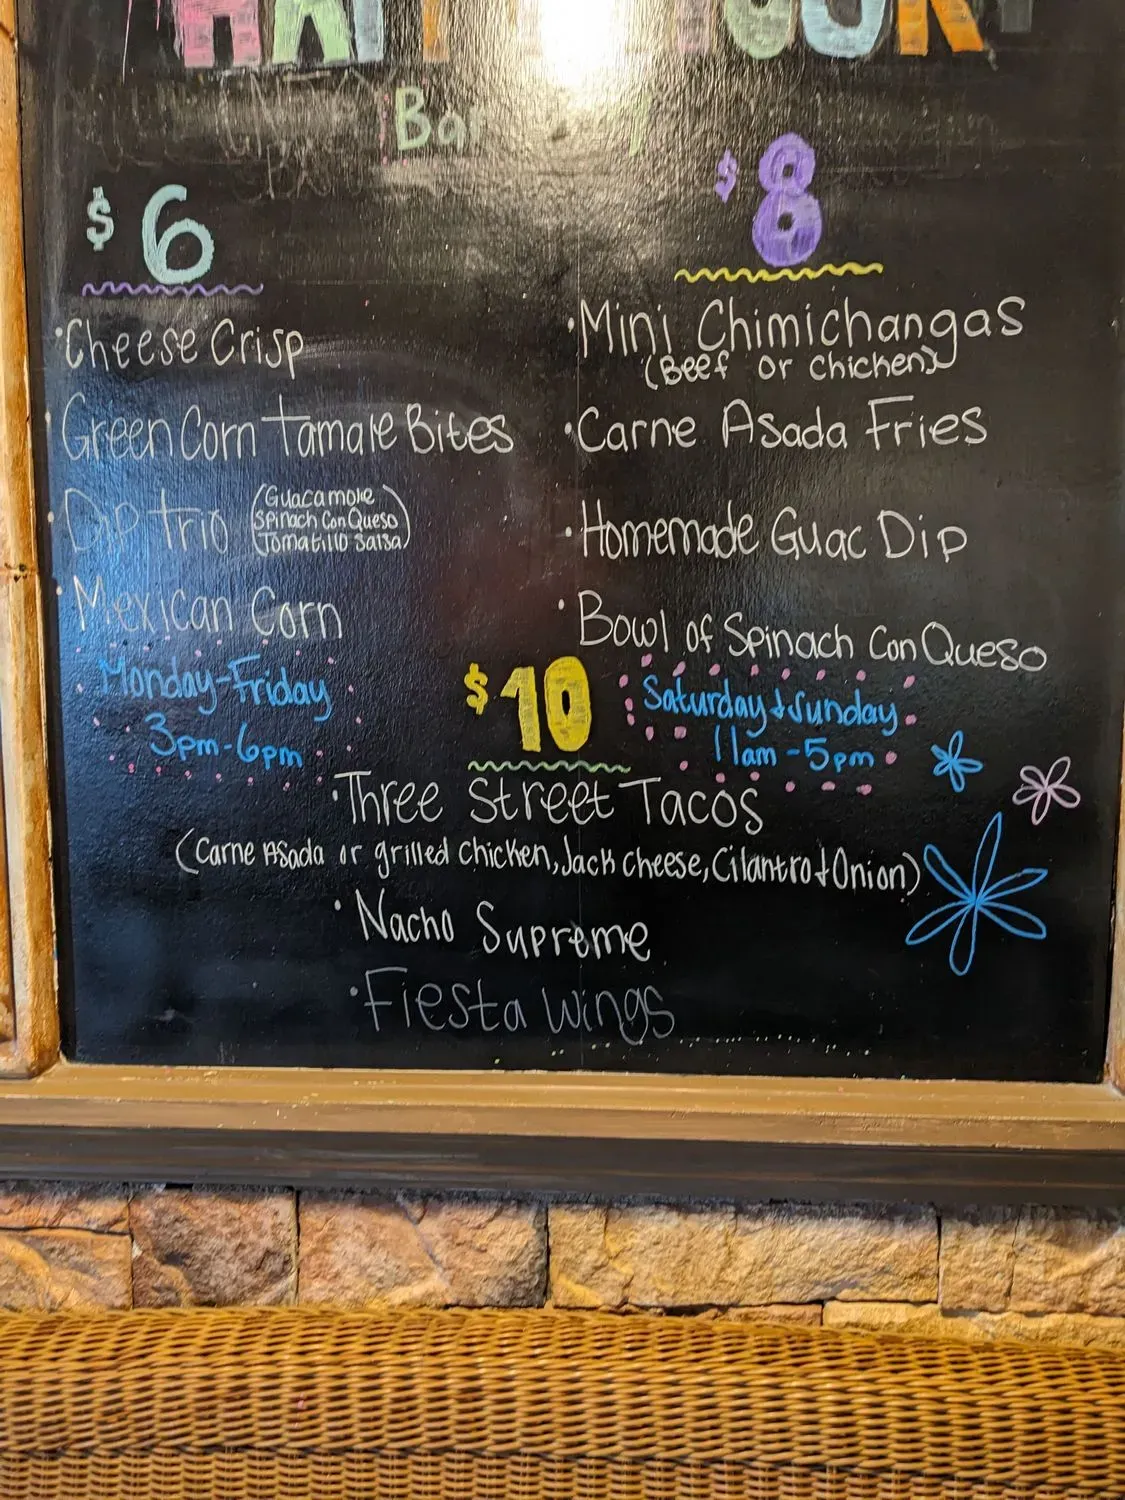 HAPPY HOUR
Bar
$6
• Cheese Crisp
• Green Corn Tamale Bites
• Dip trio (Guacamole
Spinach Con Queso
Tomatillo Salsa)
• Mexican Corn
Monday-Friday
3pm-6pm
$8
• Mini Chimichangas
(Beef or Chicken)
• Carne Asada Fries
• Homemade Guac Dip
• Bowl of Spinach Con Queso
Saturday & Sunday
11am-5pm
$10
• Three Street Tacos
(Carne Asada or grilled chicken, Jack cheese, Cilantro & Onion)
• Nacho Supreme
• Fiesta Wings